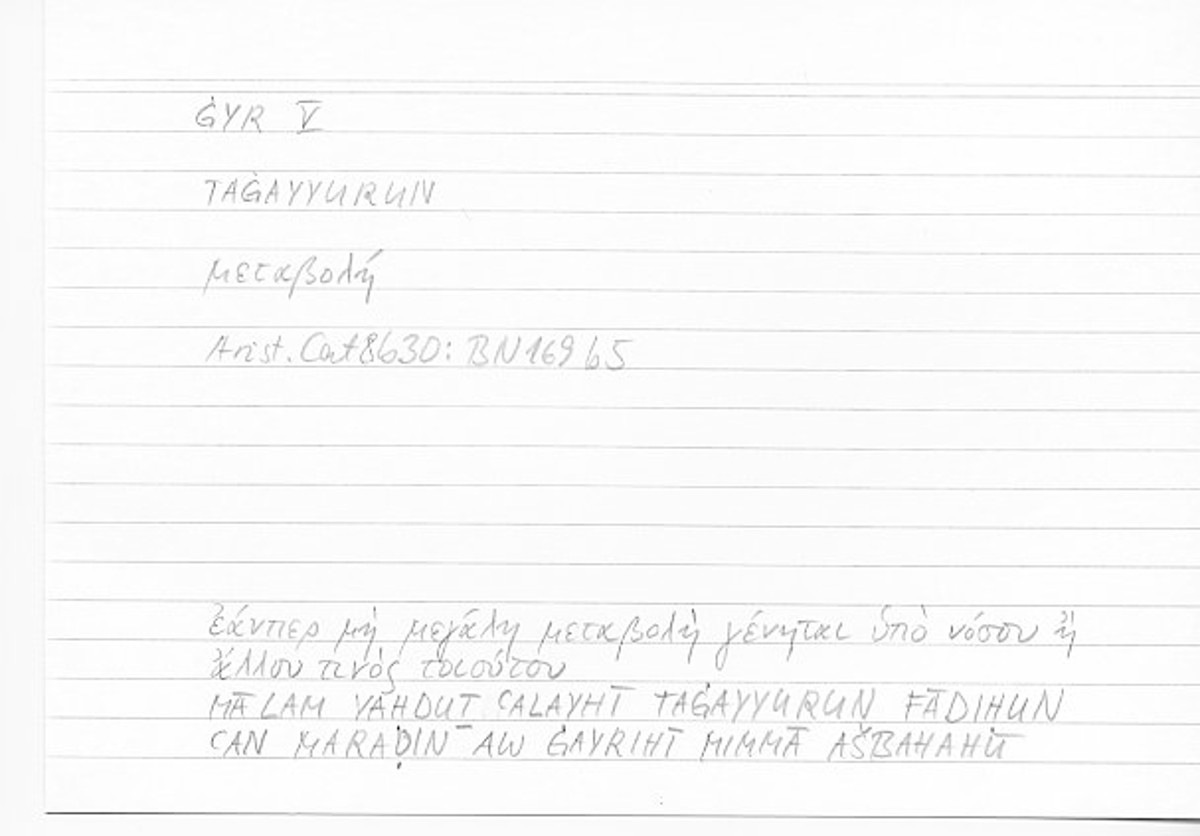 ĠYR V̅
TAĠAYYURUN
μεταβολή
Arist. Cat 8b30: BN 169 b5
ἐάνπερ μὴ μεγάλη μεταβολὴ γένηται ὑπὸ νόσου ἢ
ἄλλου τινὸς τοιούτου
MĀ LAM YAḤDUṮ ʿALAYHĪ TAĠAYYURUN FĀDIḤUN
ʿAN MARAḌIN AW ĠAYRIHĪ MIMMĀ AŠBAHAHŪ